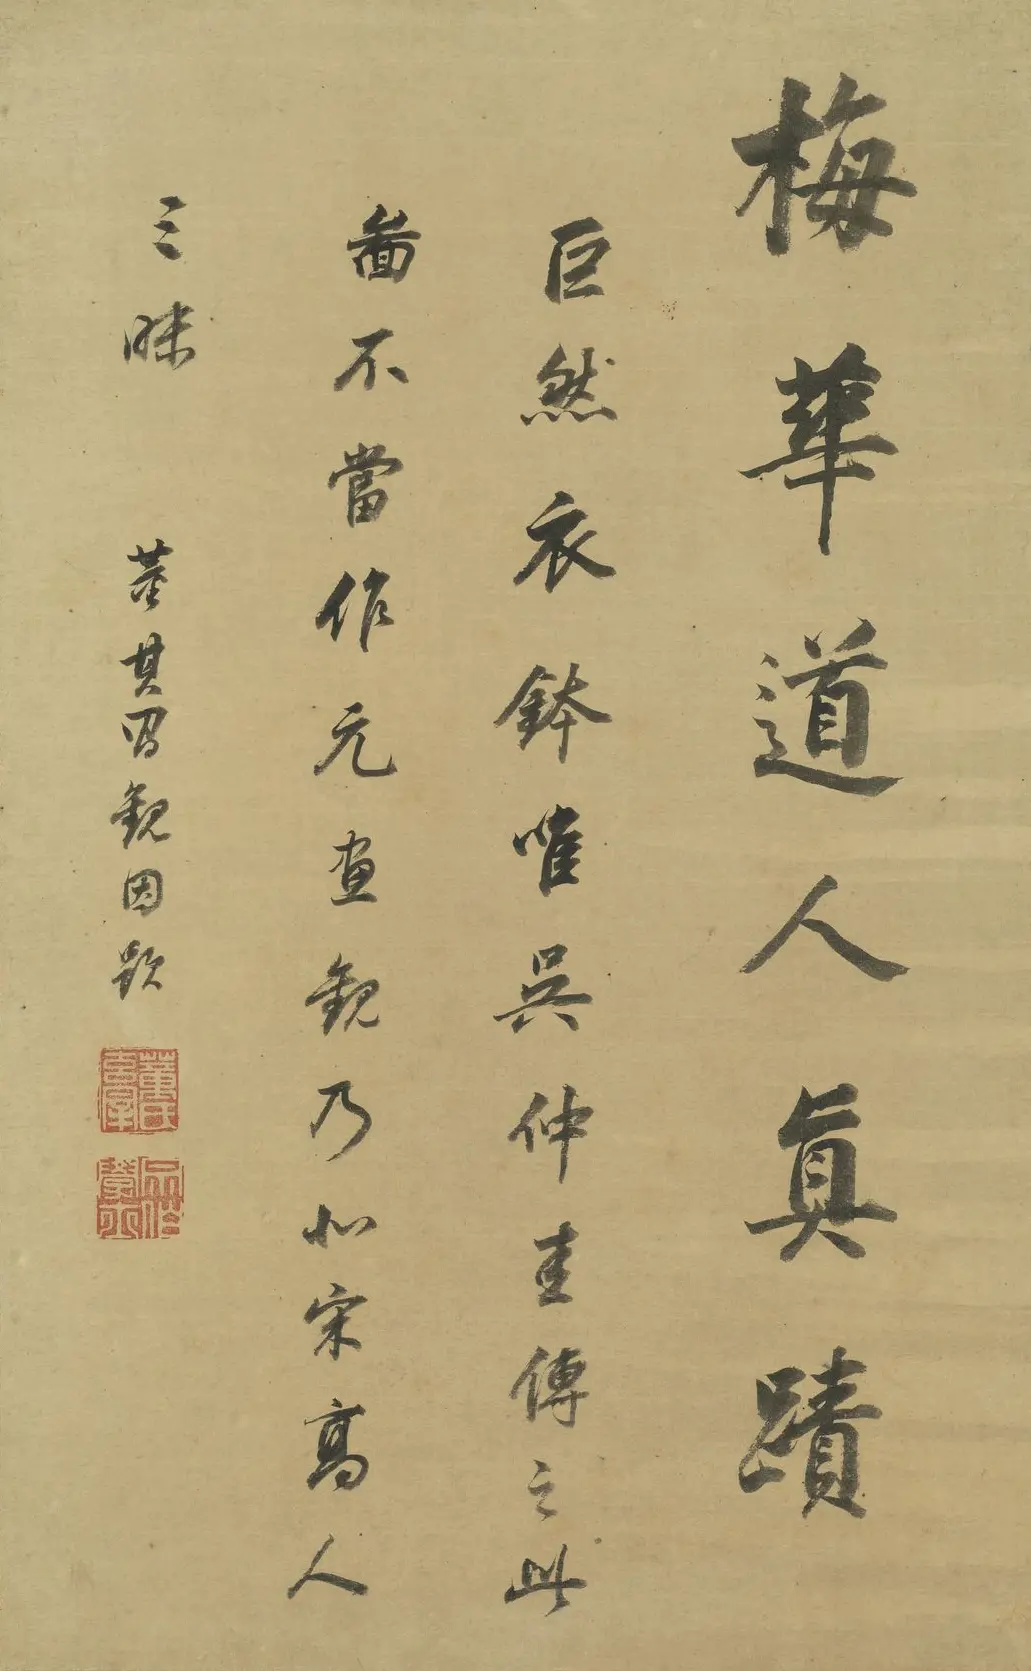 梅華道人真蹟
巨然衣鉢唯吳仲圭傳之此
圖不當作元畫觀乃北宋高人
三昧
董其昌觀因題
董氏玄宰